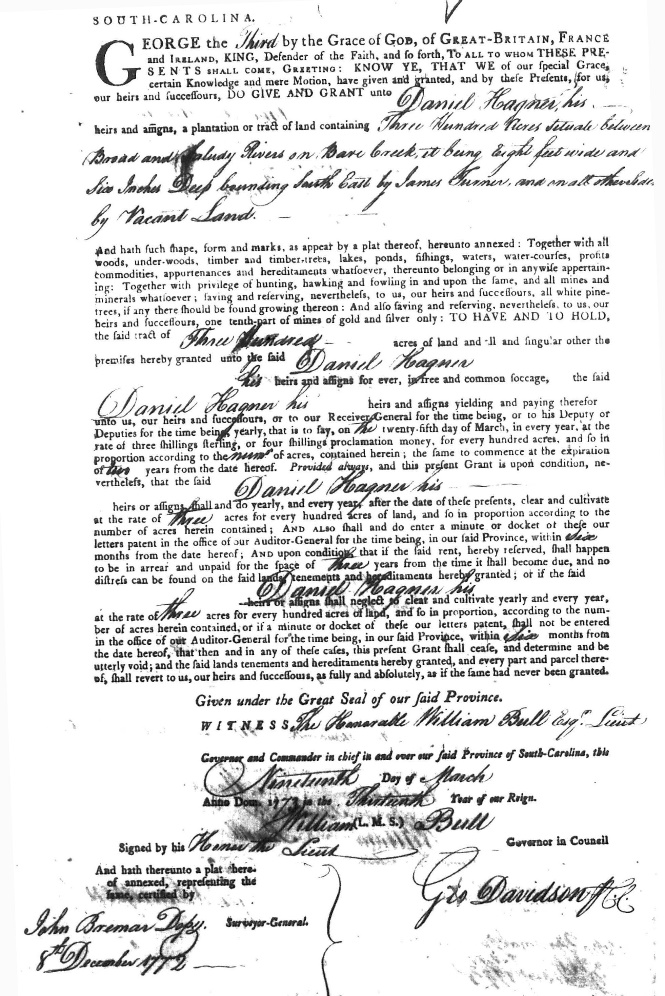 SOUTH-CAROLINA.
GEORGE the Third by the Grace of GOD, of GREAT-BRITAIN, FRANCE
and IRELAND, KING, Defender of the Faith, and so forth, TO ALL TO WHOM THESE PRE-
SENTS SHALL COME, GREETING: KNOW YE, THAT WE of our special Grace,
certain Knowledge and mere Motion, have given and granted, and by these Presents, for us,
our heirs and successours, DO GIVE AND GRANT unto Daniel Hagner, his
heirs and assigns, a plantation or tract of land containing Three Hundred Acres situate between
Broad and Saludy Rivers on Bare Creek, it being Eight feet wide and
Six Inches Deep bounding South East by James Turner, and on all other sides
by Vacant Land.
And hath such shape, form and marks, as appear by a plat thereof, hereunto annexed: Together with all
woods, under-woods, timber and timber-trees, lakes, ponds, fishings, waters, water-courses, profits
commodities, appurtenances and hereditaments whatsoever, thereunto belonging or in anywise appertain-
ing: Together with privilege of hunting, hawking and fowling in and upon the same, and all mines and
minerals whatsoever; saving and reserving, nevertheless, to us, our heirs and successours, all white pine-
trees, if any there should be found growing thereon: And also saving and reserving, nevertheless, to us, our
heirs and successours, one tenth-part of mines of gold and silver only: TO HAVE AND TO HOLD,
the said tract of Three Hundred acres of land and all and singular other the
premises hereby granted unto the said Daniel Hagner
his heirs and assigns for ever, in free and common soccage, the said
Daniel Hagner his heirs and assigns yielding and paying therefor
unto us, our heirs and successours, or to our Receiver-General for the time being, or to his Deputy or
Deputies for the time being, yearly, that is to say, on the twenty-fifth day of March, in every year, at the
rate of three shillings sterling, or four shillings proclamation money, for every hundred acres, and so in
proportion according to the num of acres, contained herein; the same to commence at the expiration
of two years from the date hereof. Provided always, and this present Grant is upon condition, ne-
vertheless, that the said Daniel Hagner his
heirs or assigns, shall and do yearly, and every year, after the date of these presents, clear and cultivate
at the rate of three acres for every hundred acres of land, and so in proportion according to the
number of acres herein contained; AND ALSO shall and do enter a minute or docket of these our
letters patent in the office of our Auditor-General for the time being, in our said Province, within six
months from the date hereof; AND upon condition, that if the said rent, hereby reserved, shall happen
to be in arrear and unpaid for the space of three years from the time it shall become due, and no
distress can be found on the said lands, tenements and hereditaments hereby granted; or if the said
Daniel Hagner his
heirs or assigns shall neglect to clear and cultivate yearly and every year,
at the rate of three acres for every hundred acres of land, and so in proportion, according to the num-
ber of acres herein contained, or if a minute or docket of these our letters patent, shall not be entered
in the office of our Auditor-General for the time being, in our said Province, within six months from
the date hereof, that then and in any of these cases, this present Grant shall cease, and determine and be
utterly void; and the said lands tenements and hereditaments hereby granted, and every part and parcel there-
of, shall revert to us, our heirs and successours, as fully and absolutely, as if the same had never been granted.
Given under the Great Seal of our said Province.
WITNESS The Honorable William Bull Esqr. Lieut
Governor and Commander in chief in and over our said Province of South-Carolina, this
Nineteenth Day of March
Anno Dom. 1773 in the Thirteenth Year of our Reign.
William (L.M.S.) Bull
Signed by his Honor the Lieut Governor in Council
And hath thereunto a plat there-
of annexed, representing the
same, certified by
Geo Davidson
John Bremar Depy. Surveyor-General.
8th December 1772